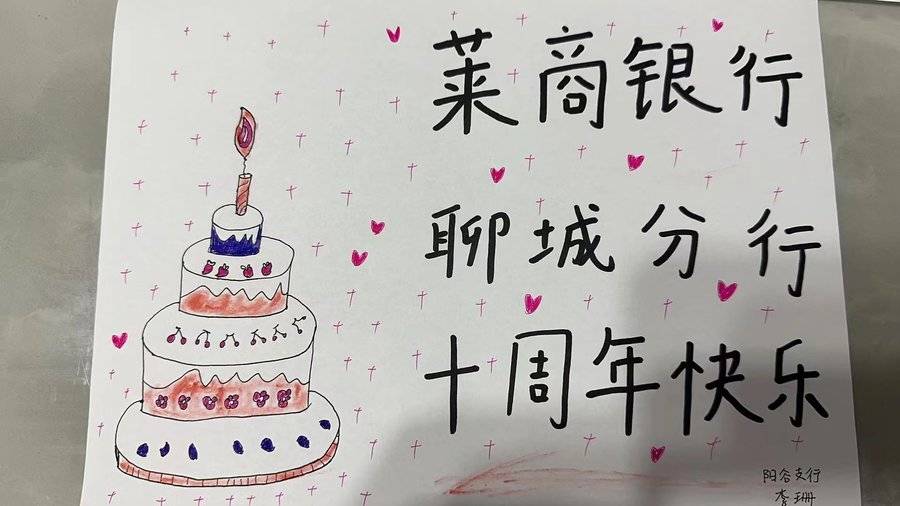 莱商银行
聊城分行
十周年快乐
阳谷支行
李珊